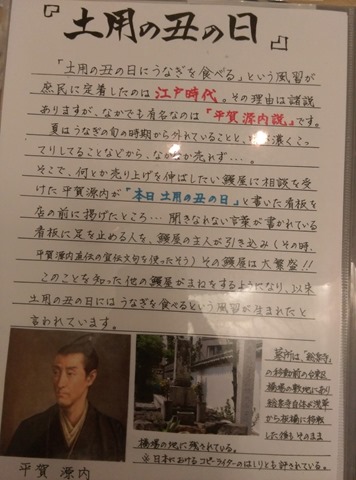 『土用の丑の日』
「土用の丑の日にうなぎを食べる」という風習が
庶民に定着したのは江戸時代。その理由は諸説
ありますが、なかでも有名なのは「平賀源内説」です。
夏はうなぎの旬の時期から外れていることと、味が濃くこっ
てりしてることなどから、なかなか売れず…。
そこで、何とか売り上げを伸ばしたい鰻屋に相談を受
けた平賀源内が「本日土用の丑の日」と書いた看板を
店の前に掲げたところ…聞きなれない言葉が書かれている
看板に足を止める人を、鰻屋の主人が引き込み(その時、
平賀源内直伝の宣伝文句を使ったそう)その鰻屋は大繁盛!!
このことを知った他の鰻屋がまねをするようになり、以来
土用の丑の日にはうなぎを食べるという風習が生まれたと
言われています。
墓所は、「総泉寺」
の移動前の台東区
橋場の敷地にあり
総泉寺自体は浅草
から板橋に移転
した後もそのまま
橋場の地に残されている。
※日本におけるコピーライターのはしりとも評されている。
平賀 源内